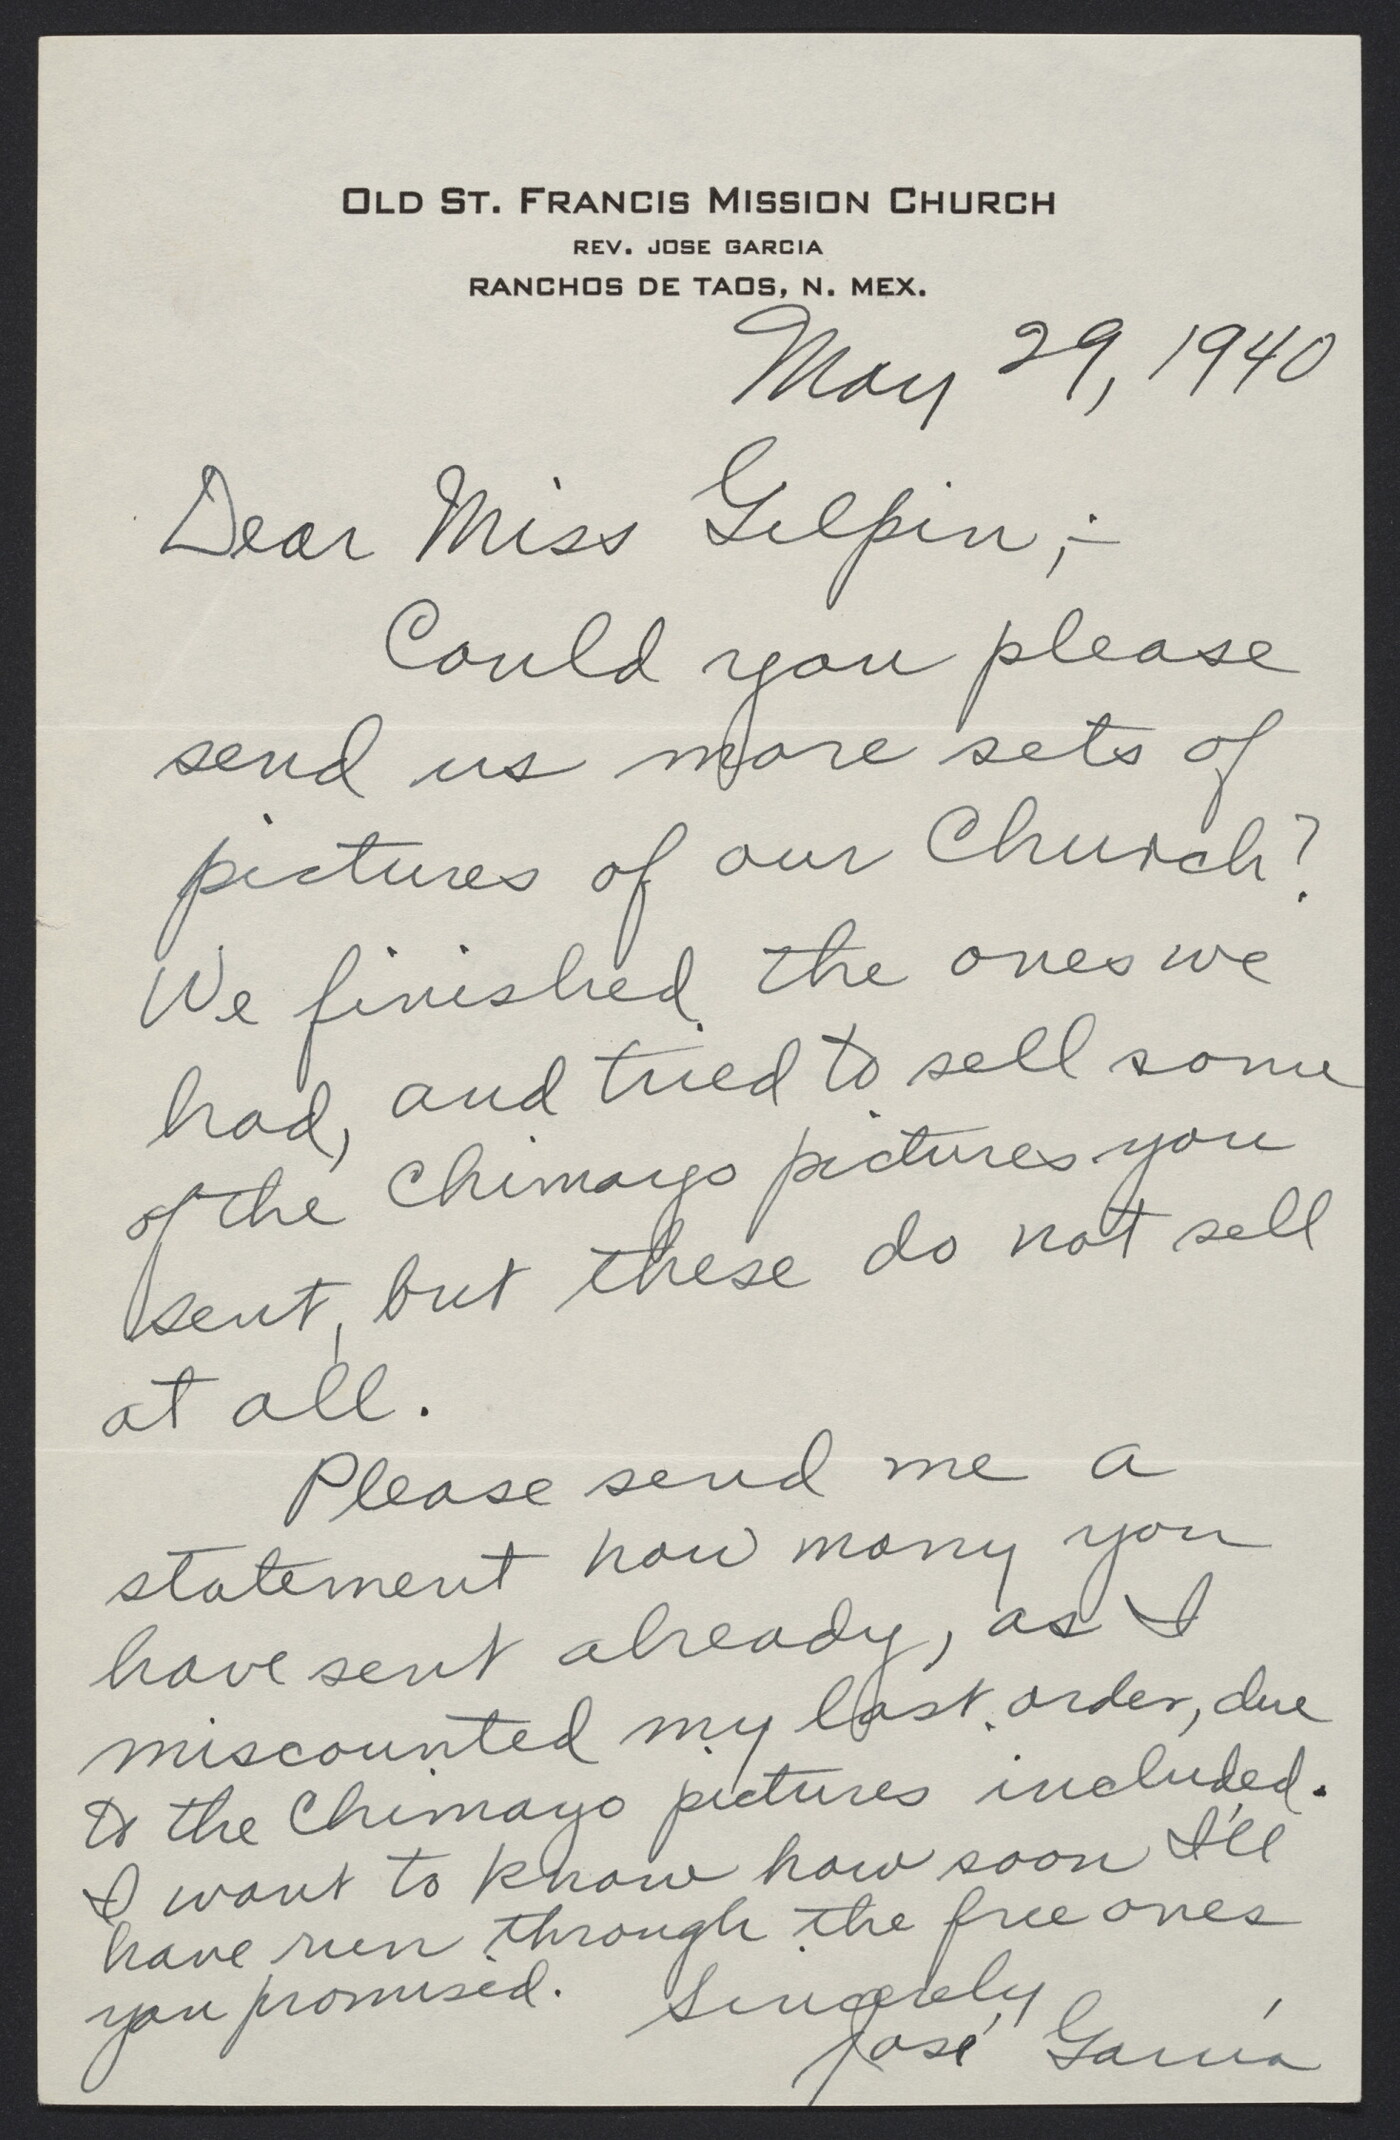 OLD ST. FRANCIS MISSION CHURCH
REV. JOSE GARCIA
RANCHOS DE TAOS, N. MEX.
May 29, 1940
Dear Miss Gilpin,:-
Could you please
send us more sets of
pictures of our Church?
We finished the ones we
had, and tried to sell some
of the Chimayo pictures you
sent, but these do not sell
at all.
Please send me a
statement how many you
have sent already, as I
miscounted my last order, due
to the Chimayo pictures included.
I want to know how soon I'll
have run through the free ones
you promised. Sincerely,
José García